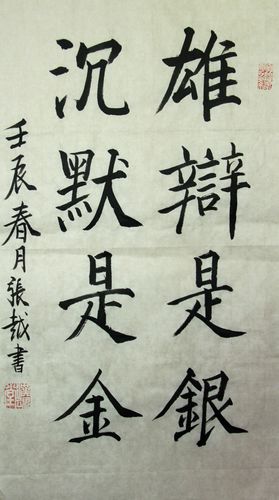 雄辯是銀
沉默是金
壬辰春月張越書